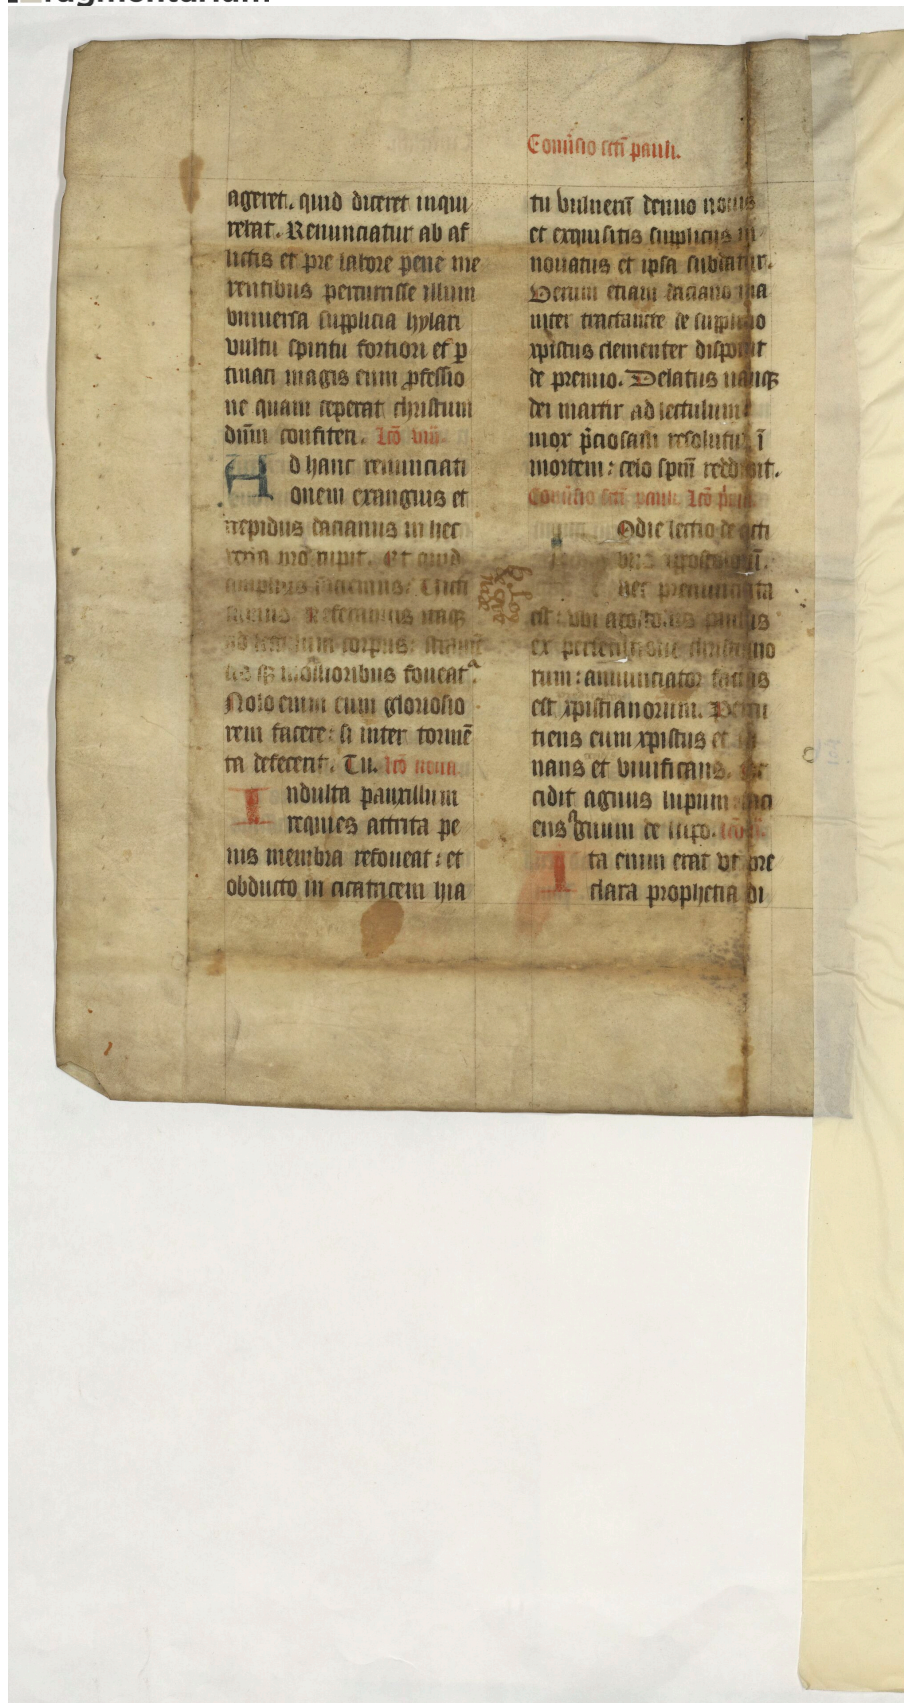 Conũsio scti pauli.
ageret. quid diceret inqui
rebat. Renunciatur ab af
flictis et pre labore pene me
rentibus percucisse illum
vniuersa supplicia hylari
vultu spiritu fortiori et p
tinaci magis eum ꝓfessio
ne quam ceperat christum
dñm confiteri. lcõ viij.
Ad hanc renunciati
onem exanguis et
trepidus dacianus in hec
verba mõ rupit. Et quid
amplius faciamus?
ad corpus:
mollioribus foueatᵃ.
Nolo enim eum gloriosio
rem facere: si inter tormẽ
ta defecerit. Tu. lcõ nona.
Indulta pauxillum
requies attrita pe
nis membra refoueat: et
obducto in cicatricem hia
tu vulnerũ denuo nouis
et exquisitis suppliciis in
nouatus et ipsa subdatur.
Verum etiam daciano ma
liter tractante de supplicio
xpistus clementer disposuit
de premio. Delatus nanqꝫ
dei martir ad lectulum
mox p̃ciosam resolutus ĩ
mortem: celo spm̃ reddidit.
Conũsio scti pauli lcõ p̃ma.
Odie lectio de acti
bus apostolorũ.
hec pronunciata
est: vbi apostolus paulus
ex persecutore christiano
rum: annunciator factus
est xpistianorum. Percu
tiens eum xpistus et sa
nans et viuificans.
cidit agnus lupum: faci
ens agnum de lupo. lcõ ij.
Ita enim erat vt pre
clara prophetia di